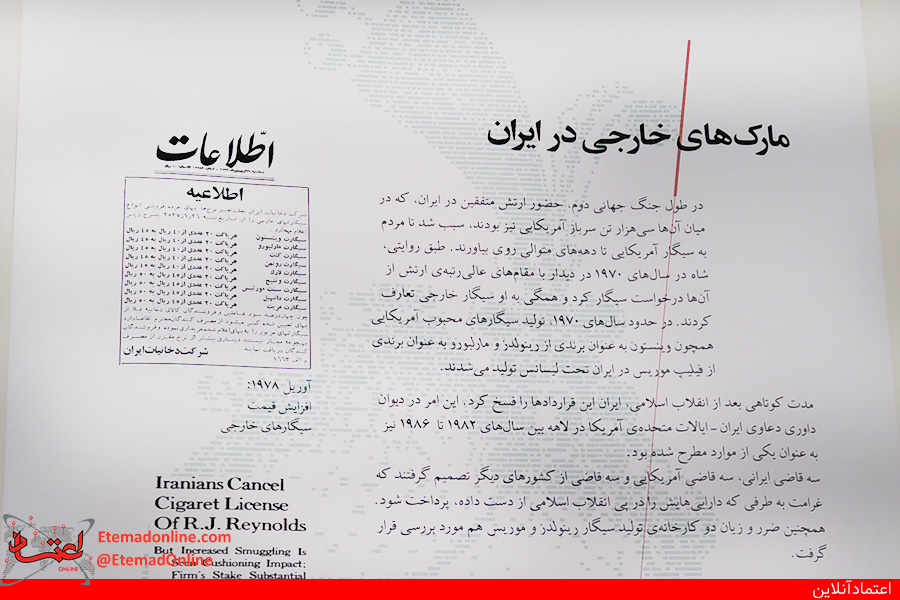 مارک‌های خارجی در ایران
در طول جنگ جهانی دوم، حضور ارتش متفقین در ایران، که در
میان آن‌ها سی‌هزار تن سرباز آمریکایی نیز بودند، سبب شد تا مردم
به سیگار آمریکایی تا دهه‌های متوالی روی بیاورند. طبق روایتی،
شاه در سال‌های ۱۹۷۰ در دیدار با مقام‌های عالی‌رتبه‌ی ارتش از
آن‌ها درخواست سیگار کرد و همگی به او سیگار خارجی تعارف
کردند. در حدود سال‌های ۱۹۷۰، تولید سیگارهای محبوب آمریکایی
همچون وینستون به عنوان برندی از رینولدز و مارلبورو به عنوان برندی
از فیلیپ موریس در ایران تحت لیسانس تولید می‌شدند.
مدت کوتاهی بعد از انقلاب اسلامی، ایران این قراردادها را فسخ کرد. این امر در دیوان
داوری دعاوی ایران - ایالات متحده‌ی آمریکا در لاهه بین سال‌های ۱۹۸۲ تا ۱۹۸۶ نیز
به عنوان یکی از موارد مطرح شده بود.
سه قاضی ایرانی، سه قاضی آمریکایی و سه قاضی از کشورهای دیگر تصمیم گرفتند که
غرامت به طرفی که دارایی‌هایش را در پی انقلاب اسلامی از دست داده، پرداخت شود.
همچنین ضرر و زیان دو کارخانه‌ی تولید سیگار رینولدز و موریس هم مورد بررسی قرار
گرفت.
اطلاعات
اطلاعیه
شرکت دخانیات ایران
سیگارت وینستون هر پاکت ۲۰ عددی از ۴۰ ریال به ۴۵ ریال
سیگارت مارلبورو هر پاکت ۲۰ عددی از ۴۰ ریال به ۴۵ ریال
سیگارت کنت هر پاکت ۲۰ عددی از ۴۰ ریال به ۴۵ ریال
شرکت دخانیات ایران
آوریل ۱۹۷۸:
افزایش قیمت
سیگارهای خارجی
Iranians Cancel
Cigaret License
Of R.J. Reynolds
But Increased Smuggling Is
Seen Cushioning Impact;
Firm's Stake Substantial
اعتماد
ONLINE
Etemadonline.com
@EtemadOnline
اعتمادآنلاین